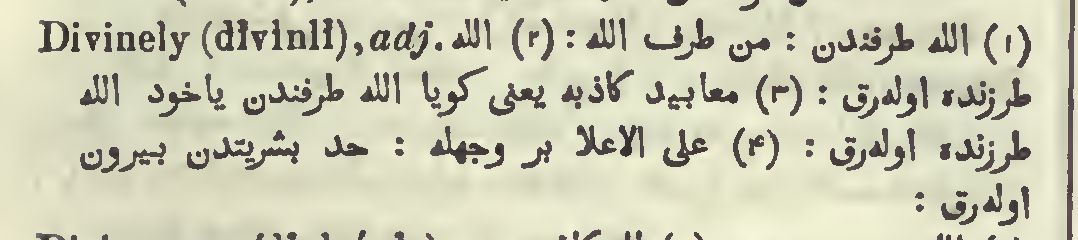 Divinely (dĭvīnlĭ), adj. (۱) الله طرفندن : من طرف الله : (۲) الله
طرزنده اوله‌رق : (۳) معابید كاذبه یعنی كویا الله طرفندن یاخود الله
طرزنده اوله‌رق : (۴) علی الاعلا بر وجهله : حد بشریتدن بیرون
اوله‌رق :